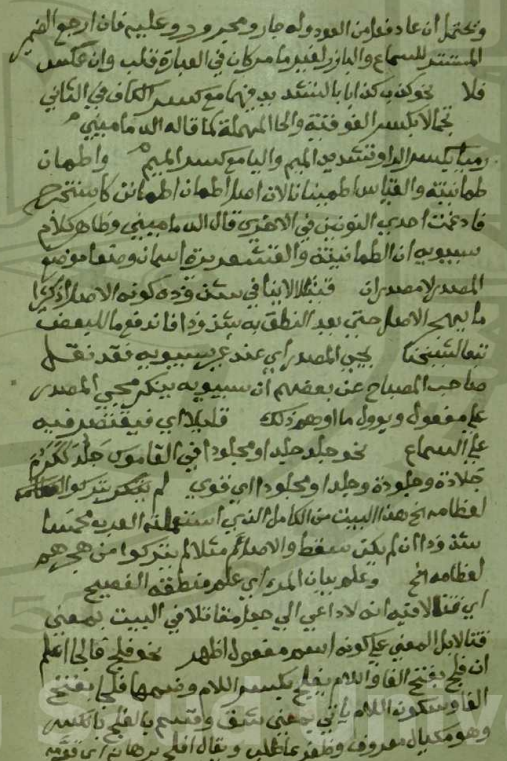 ويحتمل ان عاد فعل من العود وله جار ومجرور وعليه فان ارجع الضمير
المستتر للسماع والبارز لغير ما مر كان في العبارة قلب وان عكس
فلا نحو كذب كذابا بالتشديد فيهما مع كسر الكاف في الثاني
تحمالا بكسر الفوقية والحا المهملة كما قاله الدماميني
بكسر الراو وتشديد الميم واليا مع كسر الميم واطمان
طمانينة والقياس اطمينانا لان اصل اطمان اطمانن كاستخرج
فادغمت احدى النونين في الاخرى قال الدماميني وظاهر كلام
سيبويه ان الطمانينة والقشعريرة اسمان وضعا موضع
المصدر لا مصدران فيتلا لاينافي شذوذه كونه الاصل
ما يهجر الاصل حتى يعد النطق به شذوذا فاندفع ما للبعض
تبعا لشيخنا يجي المصدر اي عند غير سيبويه فقد نقل
صاحب المصباح عن بعضهم ان سيبويه ينكر مجي المصدر
على مفعول ويوول ما اوهم ذلك قليلا اي فيقتصر فيه
على السماع نحو جلد جلدا ومجلودا في القاموس جلد ككرم
جلادة وجلودة وجلدا ومجلودا اي قوي لم يتركوا لعظامه
لعظامه الخ هذا البيت من الكامل الذي استعملته العرب
شذوذا ان لم يكن سقط والاصل مثلا لم يتركوا من
لعظامه الخ وعلم بيان المرء اي علم منطقه الفصيح
اي قتالا فيه انه لا داعي الى جعل مقاتلا في البيت بمعنى
قتالا بل المعنى على كونه اسم مفعول اظهر نحو فلج فالجا اعلم
ان فلج بفتح الفا واللام يفلج بكسر اللام وضمها فلجا بفتح
الفا وسكون اللام ياتي بمعنى شق وقسم بالفلج بالكسر
وهو مكيال معروف وظفر بما طلب ويقال افلج برهانه اي قومه